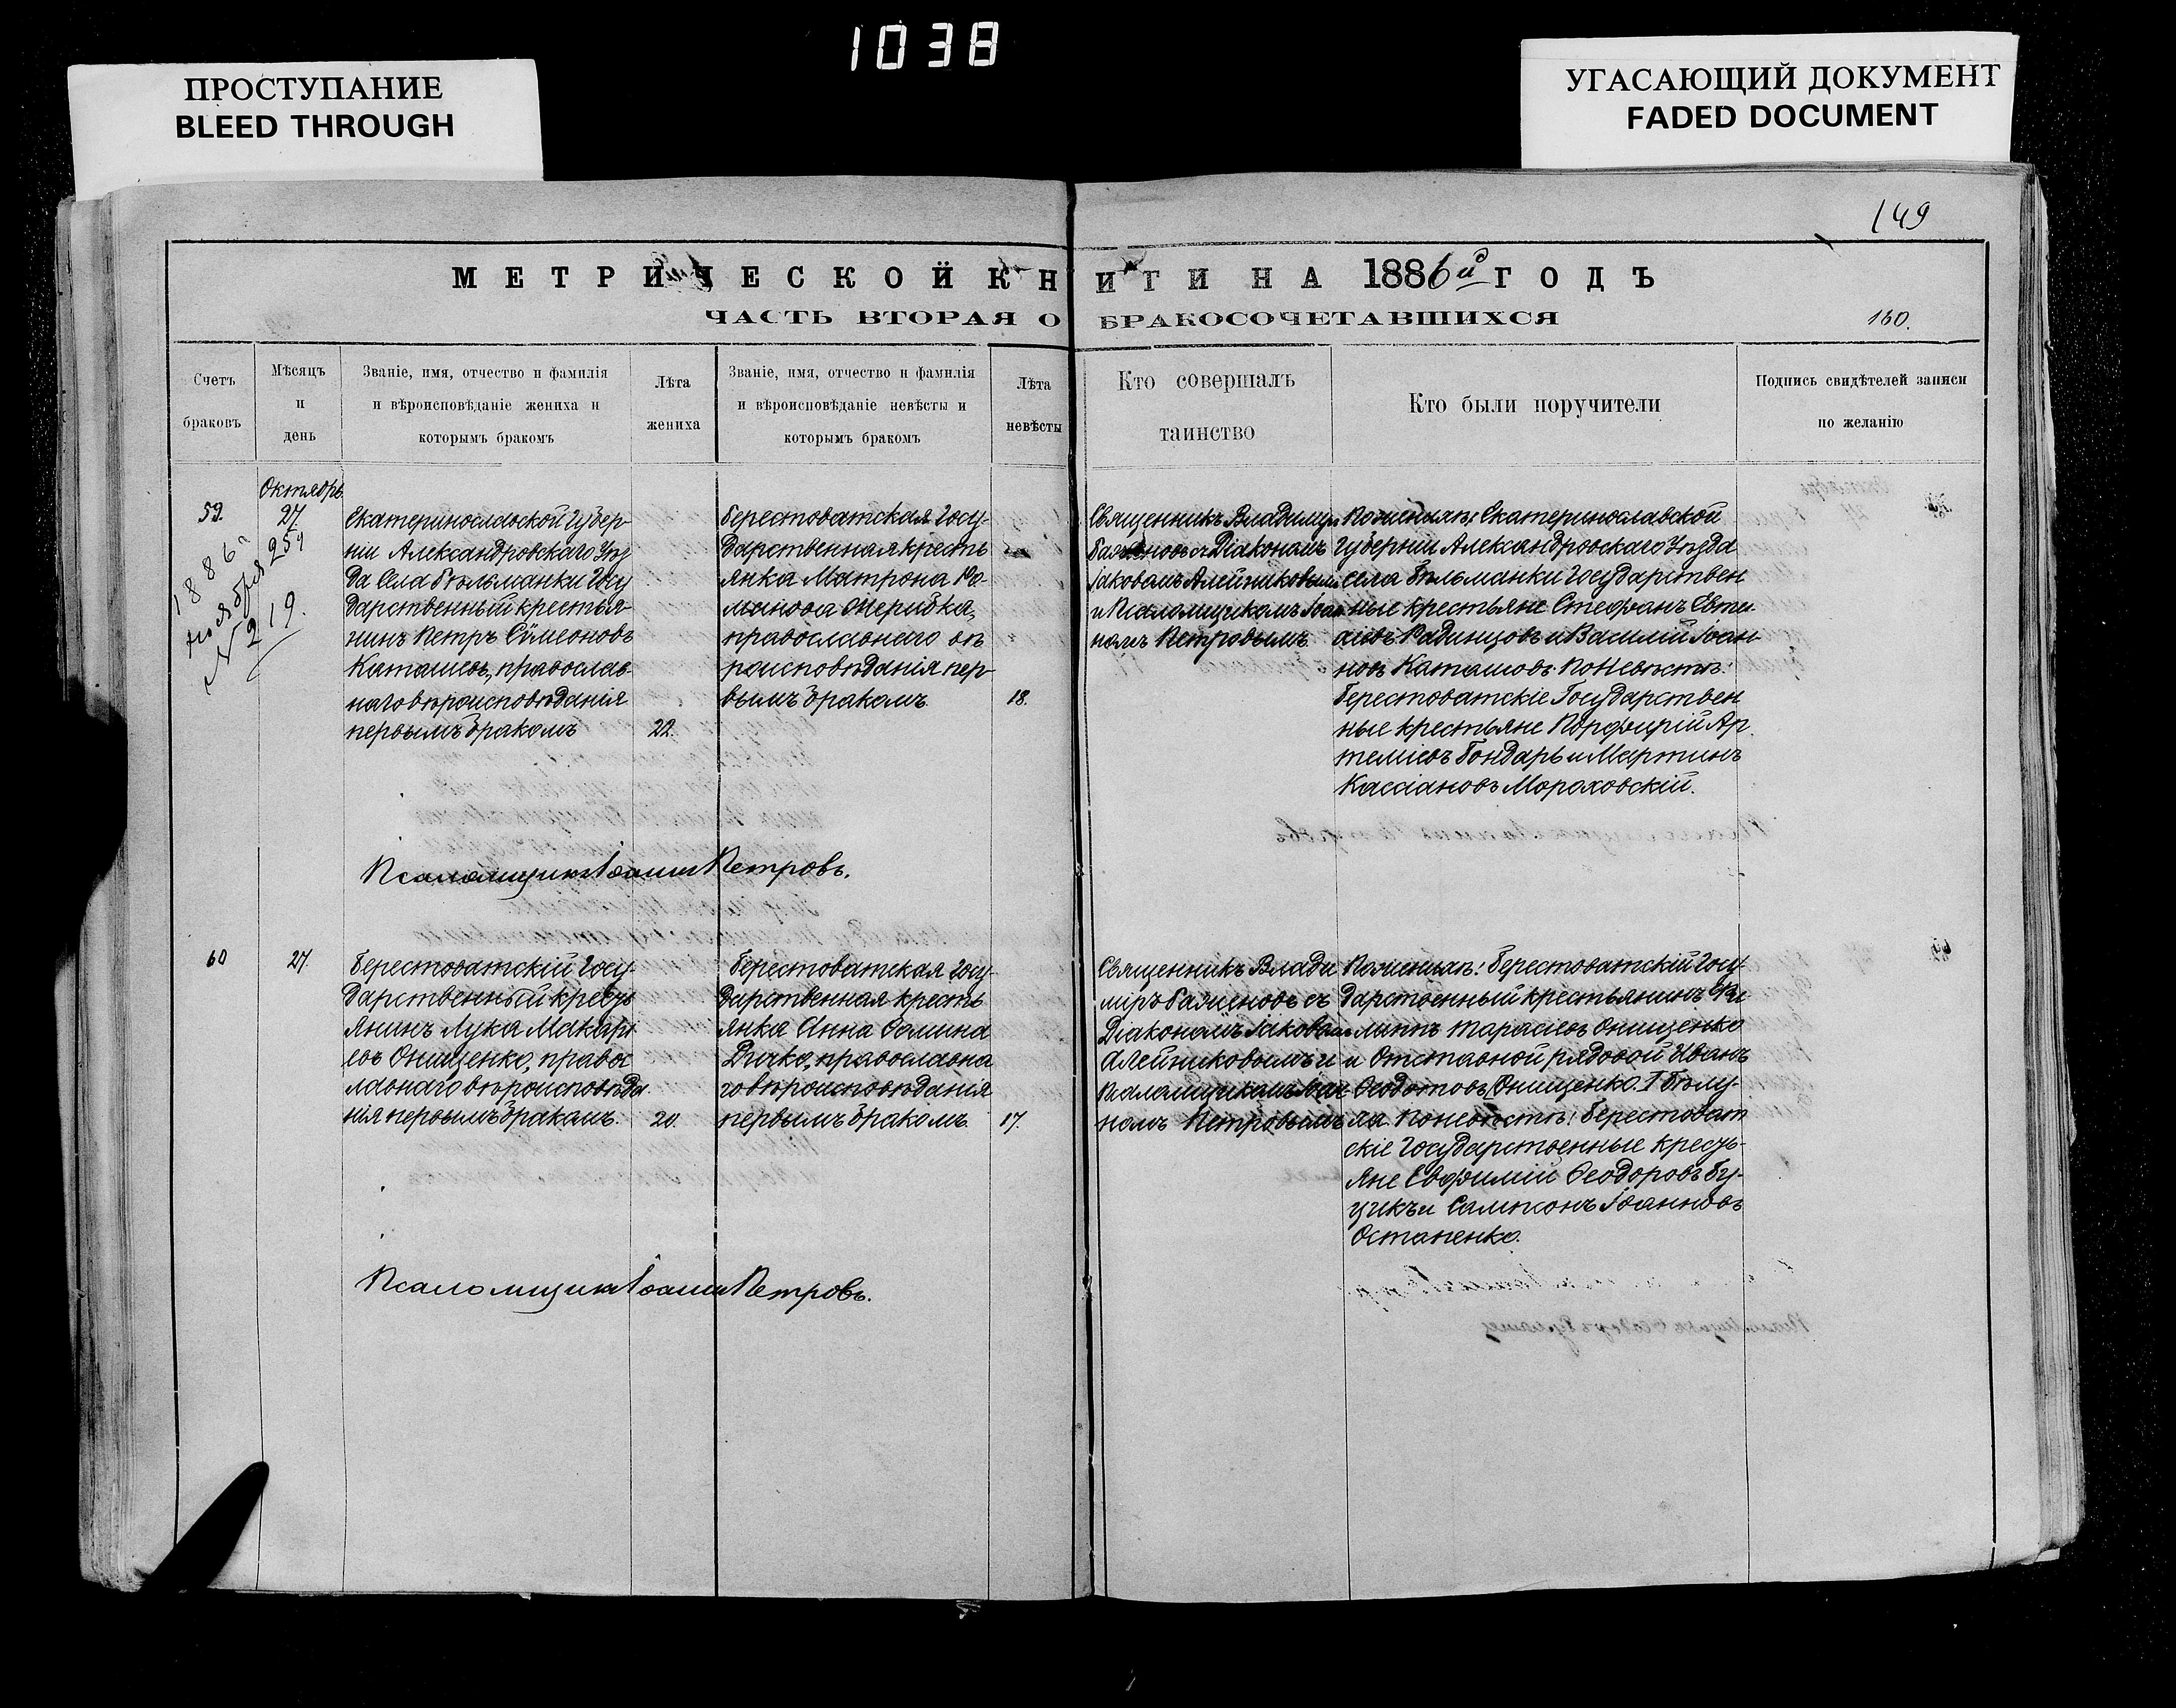 1038
ПРОСТУПАНИЕ
BLEED THROUGH
УГАСАЮЩИЙ ДОКУМЕНТ
FADED DOCUMENT
149
МЕТРИЧЕСКОЙ КНИГИ НА 1886й ГОДЪ
ЧАСТЬ ВТОРАЯ О БРАКОСОЧЕТАВШИХСЯ
160.
Счетъ
браковъ
Мѣсяцъ
и
день
Званіе, имя, отчество и фамилія
и вѣроисповѣданіе жениха и
которымъ бракомъ
Лѣта
жениха
Званіе, имя, отчество и фамилія
и вѣроисповѣданіе невѣсты и
которымъ бракомъ
Лѣта
невѣсты
Кто совершалъ
таинство
Кто были поручители
Подпись свидѣтелей записи
по желанію
59.
1886г
ноября 25д
N 219.
Октябрь
27.
Екатеринославской Губер-
ніи Александровскаго Уѣз
да Села Бѣльманки Госу
дарственный крестья-
нинъ Петръ Сѵмеоновъ
Каташовъ, православ-
наго вѣроисповѣданія
первымъ бракомъ
22.
Берестоватская Госу-
дарственная кресть
янка Матрона Ро-
манова Очерибка,
православнаго вѣ
роисповѣданія пер-
вымъ бракомъ
18.
Священникъ Владиміръ
Баженовъ съ Діакономъ
Іаковомъ Алейниковымъ
и Псаломщикомъ Іоан
номъ Петровымъ
По женихѣ: Екатеринославской
Губерніи Александровскаго Уѣзда
села Бѣльманки Государствен
ные крестьяне Стефанъ Евти-
хіевъ Радинцовъ и Василій Іоан-
новъ Каташовъ. По Невѣстѣ:
Берестоватскіе Государствен
ные крестьяне Порфирій Ар
теміевъ Бондарь и Мартинъ
Кассіановъ Мороховскій.
Псаломщикъ Іоаннъ Петровъ.
60
27
Берестоватскій Госу-
дарственный кресть
янинъ Лука Макарі
евъ Онищенко, право
славнаго вѣроисповѣда
нія первымъ бракомъ.
20
Берестоватская Госу-
дарственная кресть
янка Анна Ѳомина
Дичко, православна
го вѣроисповѣданія
первымъ бракомъ
17.
Священникъ Влади
міръ Баженовъ съ
Діакономъ Іаковомъ
Алейниковымъ и
Псаломщикомъ Іоан
номъ Петровымъ
По женихѣ: Берестоватскій Госу-
дарственный крестьянинъ Фи
липпъ Тарасіевъ Онищенко
и Отставной рядовой Иванъ
Ѳеодотовъ Онищенко.
По невѣстѣ: Берестоват
скіе Государственные кресть-
яне Евфимій Ѳеодоровъ Бу-
цикъ и Сампсонъ Іоанновъ
Остапенко.
Псаломщикъ Іоаннъ Петровъ.